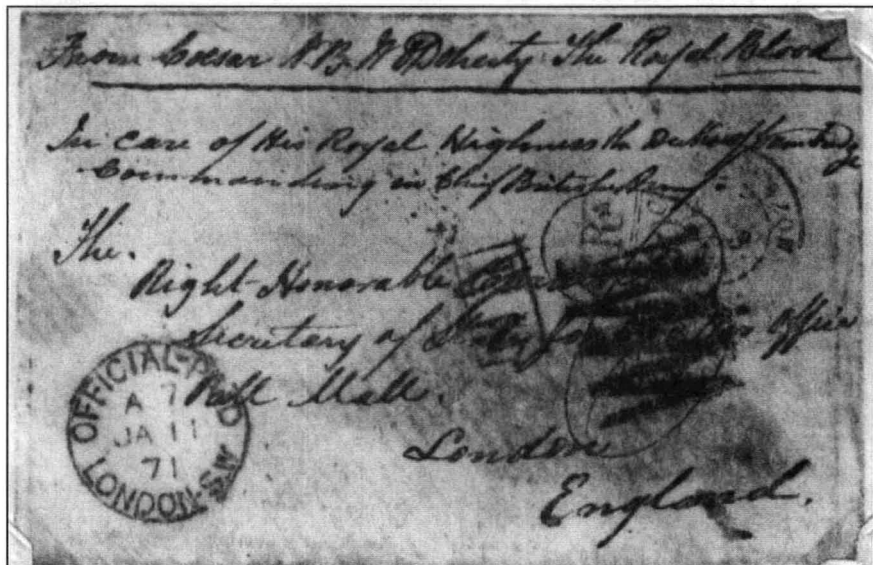 From Coesar N B. W O'Doherty The Royal Blood
In care of His Royal Highness the Duke of Cambridge
Commanding in Chief British Army.
The.
Right Honorable
Secretary of State for Office
Pall Mall.
London
England.
OFFICIAL-PAID
A 7
JA 11
71
LONDON S.W